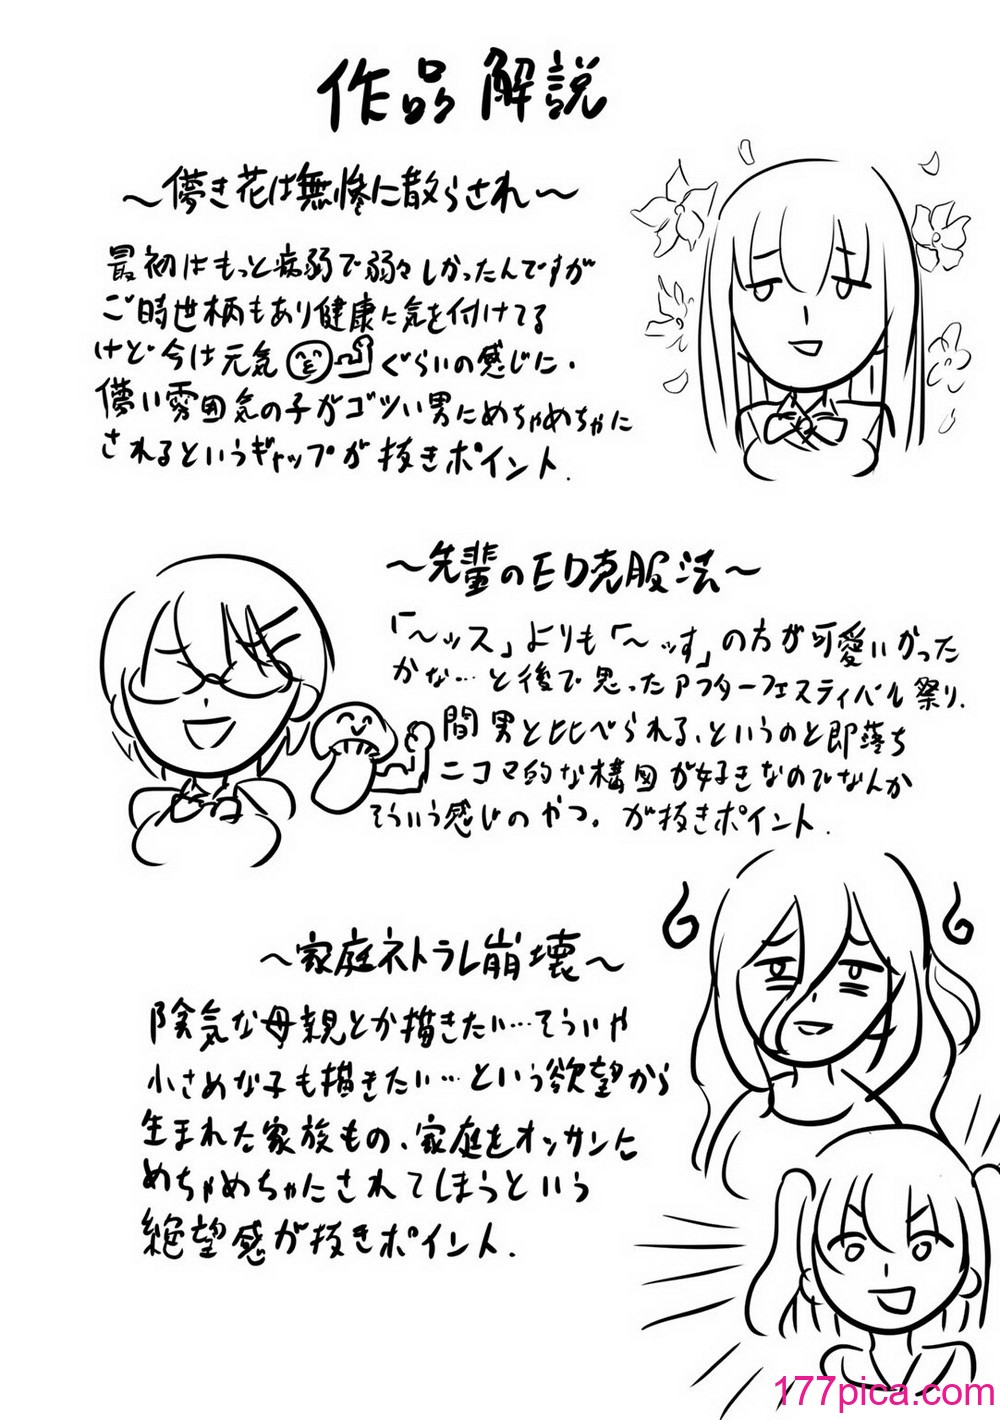 作品解説
～儚き花は無惨に散らされ～
最初はもっと病弱で弱々しかったんですが
ご時世柄もあり健康に気を付けてる
けど今は元気ぐらいの感じに.
儚い雰囲気の子がゴツい男にめちゃめちゃに
されるというギャップが抜きポイント.
～先輩のED克服法～
「～ッス」よりも「～っす」の方が可愛いかった
かな…と後で思ったアフターフェスティバル祭り.
間男と比べられる、というのと即落ち
ニコマ的な構図が好きなのでなんか
そういう感じのやつ. が抜きポイント.
～家庭ネトラレ崩壊～
陰気な母親とか描きたい…そういや
小さめな子も描きたい…という欲望から
生まれた家族もの、家庭をオッサンに
めちゃめちゃにされてしまうという
絶望感が抜きポイント.
177pica.com